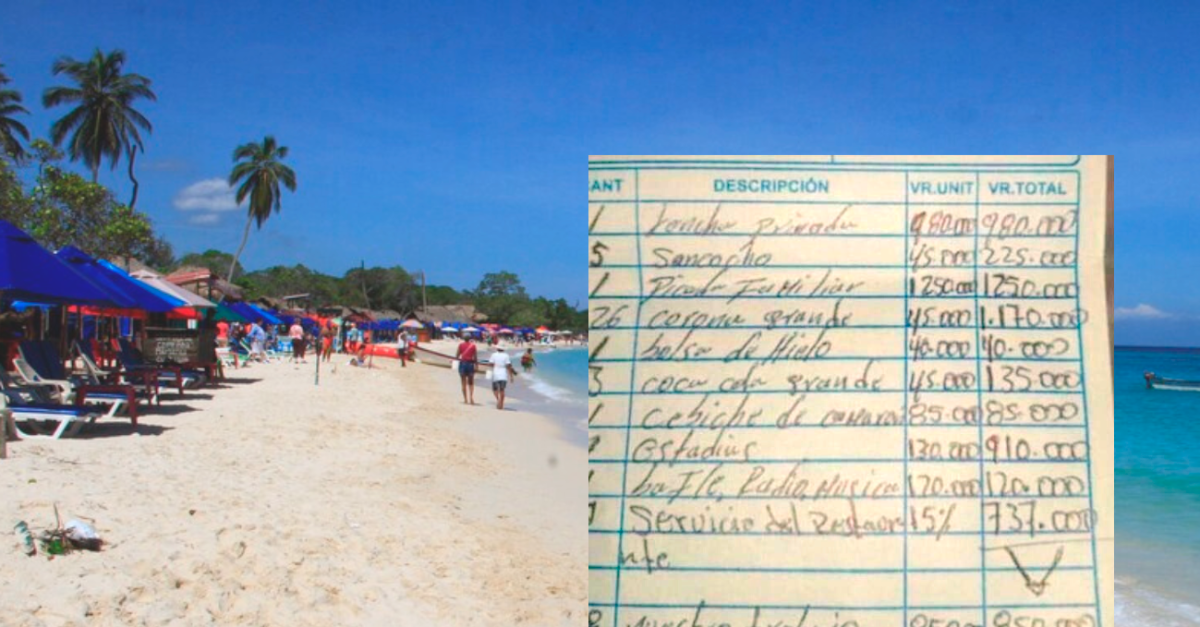 CANT DESCRIPCIÓN VR.UNIT VR.TOTAL
1 Lancha privada 980.000 980.000
5 Sancocho 45.000 225.000
1 Picada Familiar 1250.000 1250.000
26 corona grande 45.000 1.170.000
1 bolsa de Hielo 40.000 40.000
3 coca cola grande 45.000 135.000
1 Cebiche de camaron 85.000 85.000
Estadius 130.000 910.000
1 bafle, Radio, Musica 120.000 120.000
Servicio del Restaur 15% 737.000
nte
850.000